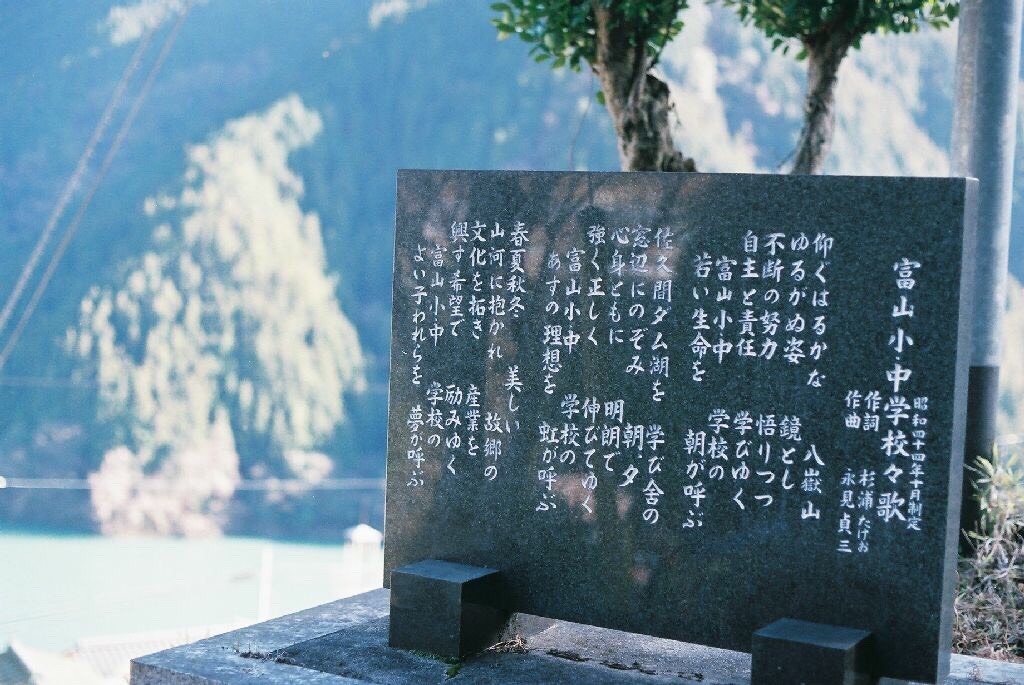 富山小・中学校々歌
昭和四十四年十月制定
作詞 杉浦たけお
作曲 永見貞三
仰ぐはるかな 八嶽山
ゆるがぬ姿 鏡とし
不断の努力 悟りつつ
自主と責任 学びゆく
富山小中 学校の
若い生命を 朝が呼ぶ
佐久間ダム湖を 学び舎の
窓辺にのぞみ 朝夕
心身ともに 明朗で
強く正しく 伸びてゆく
富山小中 学校の
あすの理想を 虹が呼ぶ
春夏秋冬 美しい
山河に抱かれ 故郷の
文化を拓き 産業を
興す希望で 励みゆく
富山小中 学校の
よい子われらを 夢が呼ぶ